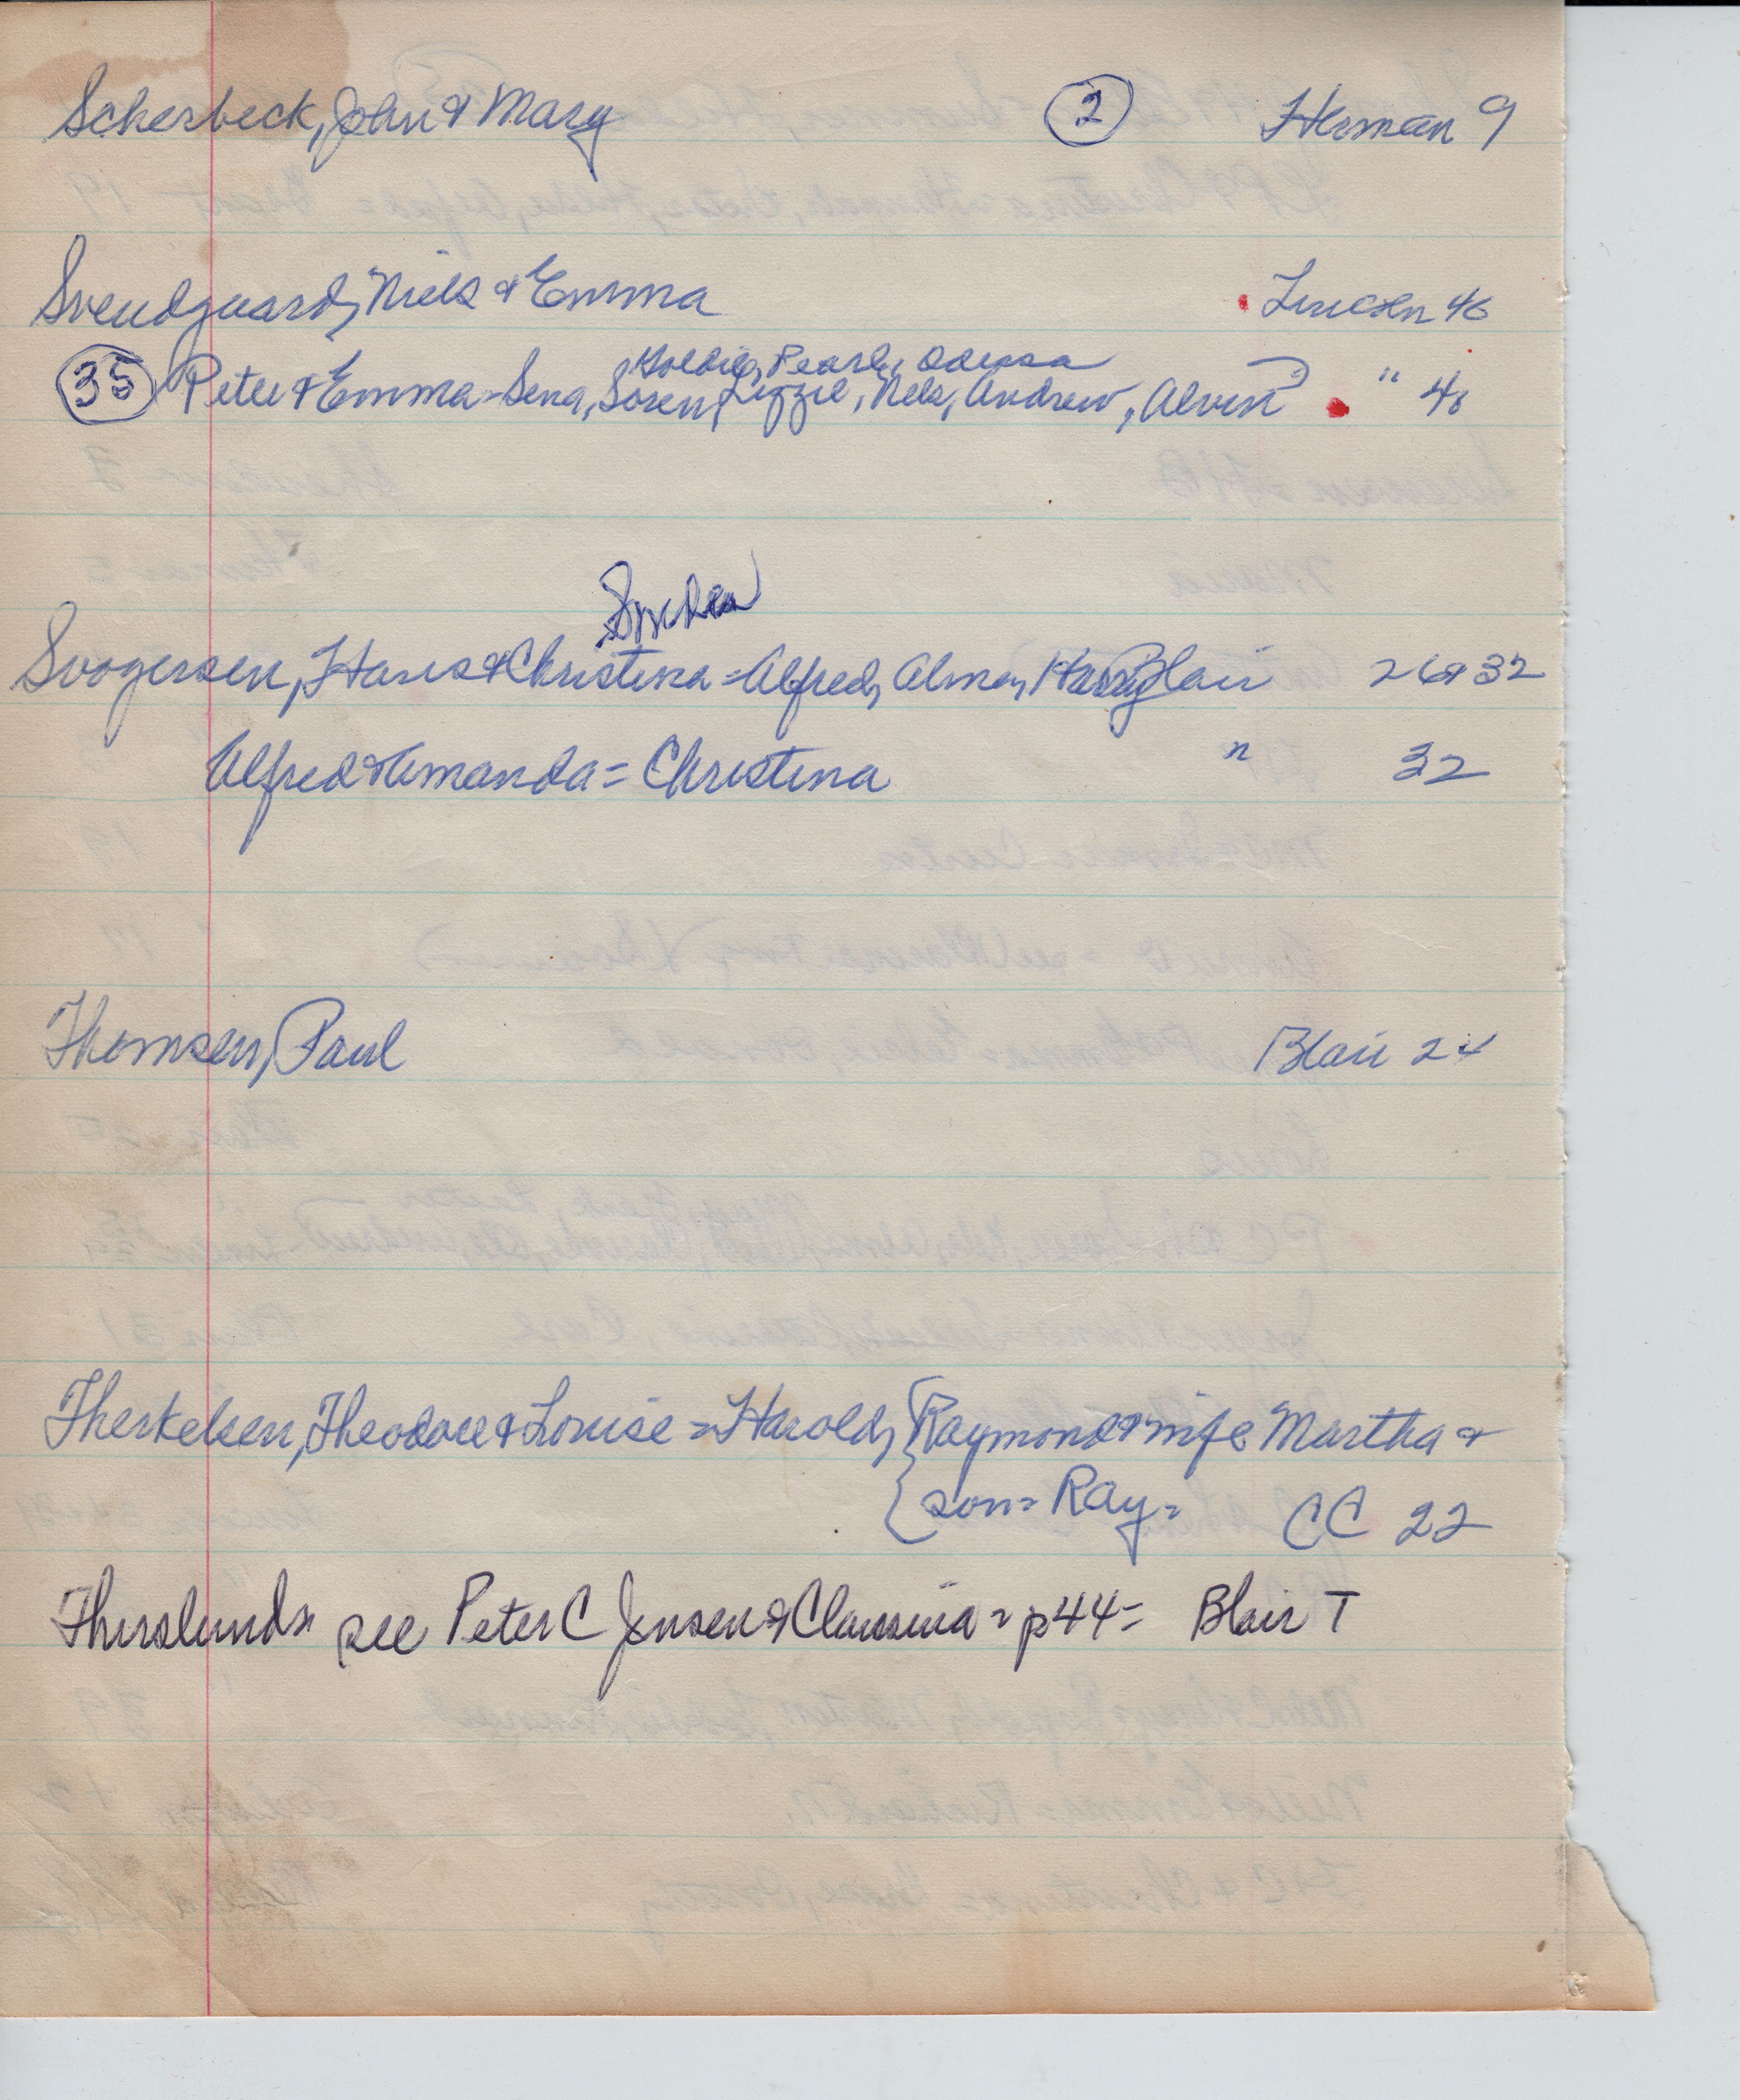 Scherbeck, John & Mary 2 Herman 9
Svendgaard, Niels & Emma Lincoln 46
Goldie, Pearl, Odessa
35 Peter & Emma = Sena, Soren, Lizzie, Nels, Andrew, Alvin " 46
Svogersen, Hans & Christina = Alfred, Alma, Harry Blair 26 & 32
Alfred & Amanda = Christina " 32
Thomsen, Paul Blair 24
Therkelsen, Theodore & Louise = Harold, { Raymond & wife Martha &
{ son = Ray = CC 22
see Peter C Jensen & = p44 = Blair T